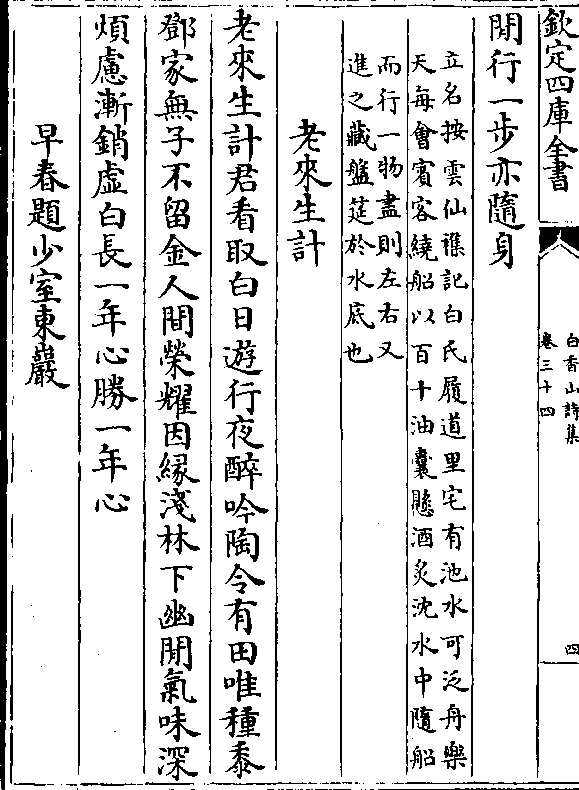 欽定四庫全書
白香山詩集
卷三十四
四
閒行一步亦隨身
立名按雲仙襍記白氏履道里宅有池水可泛舟樂
天每會賓客繞船以百十油囊懸酒炙沈水中隨船
而行一物盡則左右又
進之藏盤筵於水底也
老來生計
老來生計君看取白日遊行夜醉吟陶令有田唯種黍
鄧家無子不留金人間榮耀因緣淺林下幽閒氣味深
煩慮漸銷虛白長一年心勝一年心
早春題少室東巖